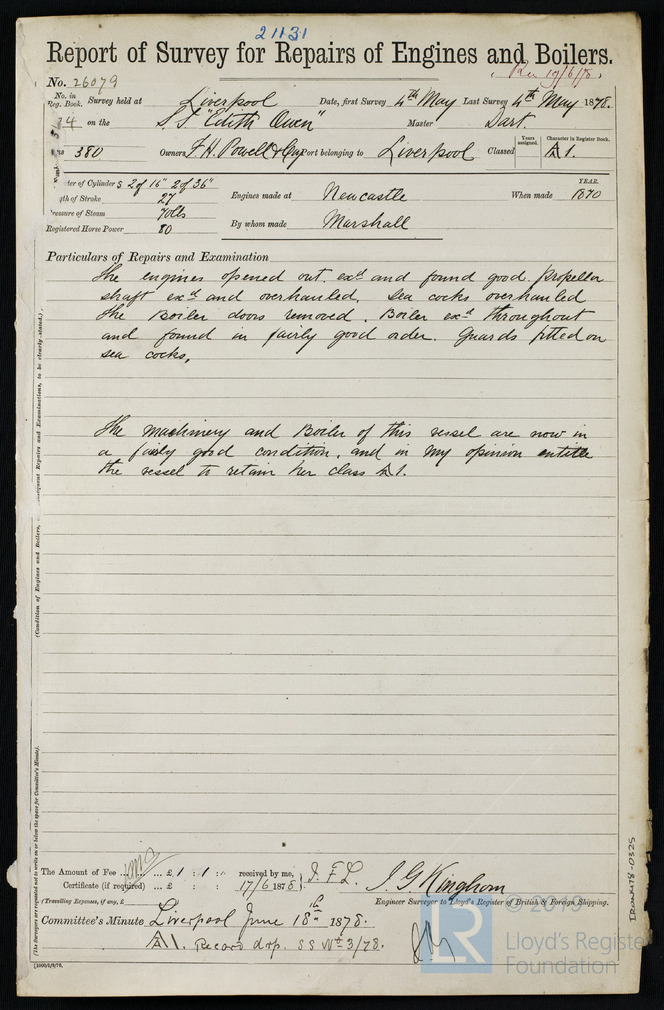 21131
Report of Survey for Repairs of Engines and Boilers.
No. 26079
Rec 19/6/78.
No. in Reg. Book. Survey held at Liverpool Date, first Survey 4th May Last Survey 4th May 1878.
on the S.S "Edith Owen" Master Dart.
380 Owners F. H. Powell & Coy Port belonging to Liverpool Classed Years assigned. Character in Register Book. A1.
ter of Cylinders 2 of 16" 2 of 36"
gth of Stroke 27 Engines made at Newcastle When made YEAR. 1870
ressure of Steam 70lbs
Registered Horse Power 80 By whom made Marshall
Particulars of Repairs and Examination
The engines opened out. exd and found good. Propeller
shaft exd and overhauled. Sea cocks overhauled
The Boiler doors removed. Boiler exd throughout
and found in fairly good order. Guards fitted on
sea cocks.
The machinery and Boiler of this vessel are now in
a fairly good condition, and in my opinion entitle
the vessel to retain her class A1.
(Condition of Engines and Boilers,
Repairs and Examinations, to be clearly stated.)
(The Surveyors are requested not to write on or below the space for Committee's Minute).
The Amount of Fee ... £ 1 : 1 : received by me,
Certificate (if required) ... £ : : 17/6 1878
(Travelling Expenses, if any, £
J. F. L. J. G. Kinghorn
Engineer Surveyor to Lloyd's Register of British & Foreign Shipping.
Committee's Minute Liverpool June 18th 1878.
A1. Record drp. SS No 3/78.
IRON478-0325
© 2019
LR
Lloyd's Register
Foundation